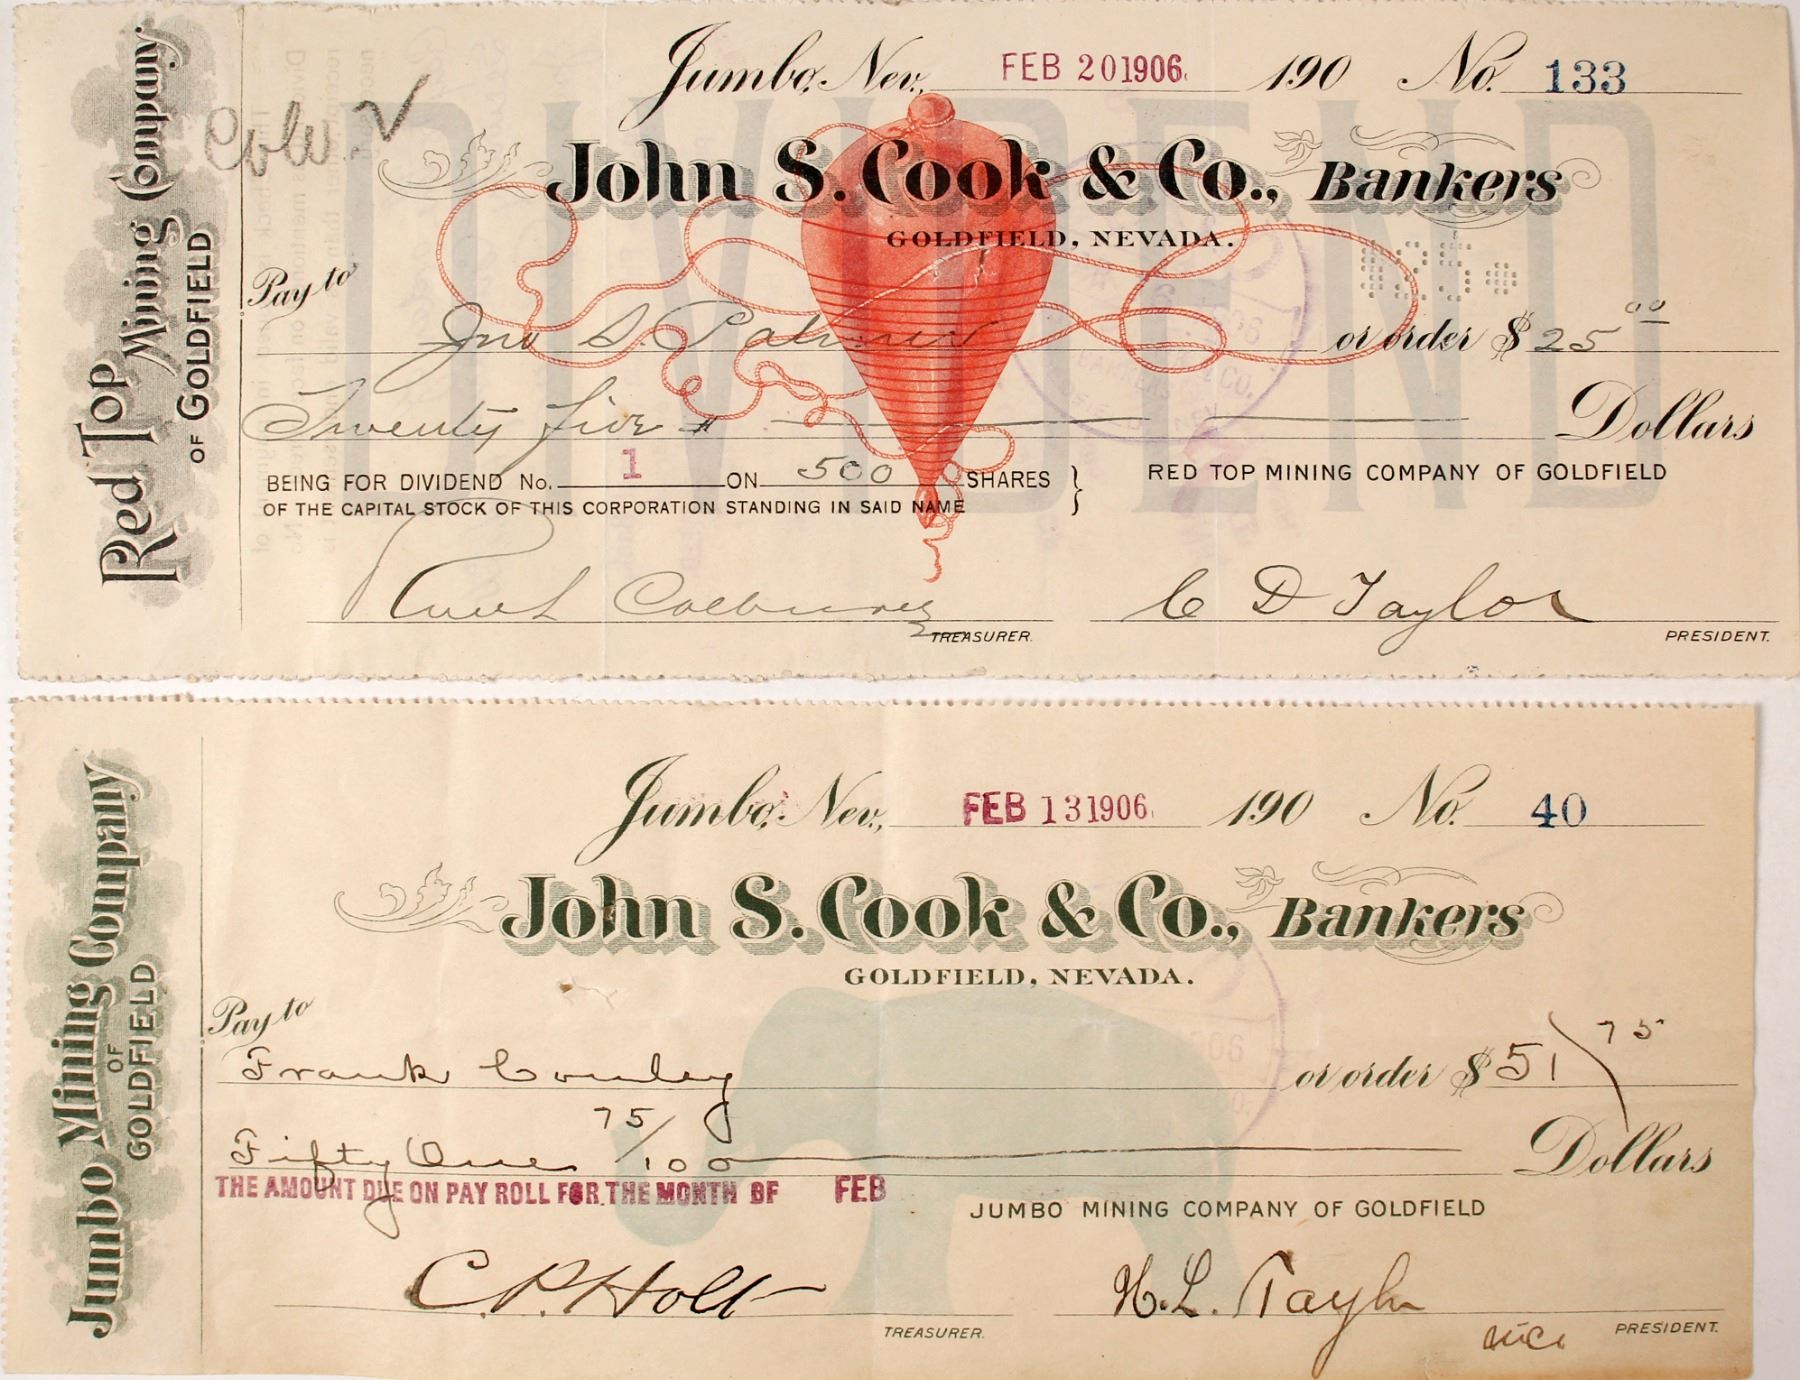 Red Top Mining Company
OF GOLDFIELD
Jumbo, Nev., FEB 20 1906. 190 No. 133
DIVIDEND
John S. Cook & Co., Bankers
GOLDFIELD, NEVADA.
Pay to
Jno S Palmer or order $ 25 00
Twenty five # Dollars
BEING FOR DIVIDEND No. 1 ON 500 SHARES }
OF THE CAPITAL STOCK OF THIS CORPORATION STANDING IN SAID NAME
RED TOP MINING COMPANY OF GOLDFIELD
C D Taylor
TREASURER. PRESIDENT.
Jumbo Mining Company
OF
GOLDFIELD
Jumbo, Nev., FEB 13 1906. 190 No. 40
John S. Cook & Co., Bankers
GOLDFIELD, NEVADA.
Pay to
Frank Conley or order $ 51 75
Fifty One 75/100 Dollars
THE AMOUNT DUE ON PAY ROLL FOR THE MONTH OF FEB
JUMBO MINING COMPANY OF GOLDFIELD
C.P. Holt H.L. Taylor
TREASURER. PRESIDENT.